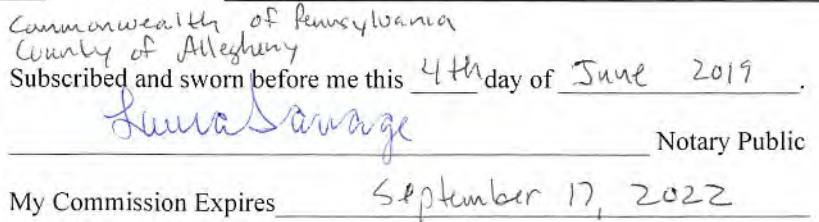 Commonwealth of Pennsylvania
County of Allegheny
Subscribed and sworn before me this 4th day of June 2019.
Laura Savage Notary Public
My Commission Expires September 17, 2022